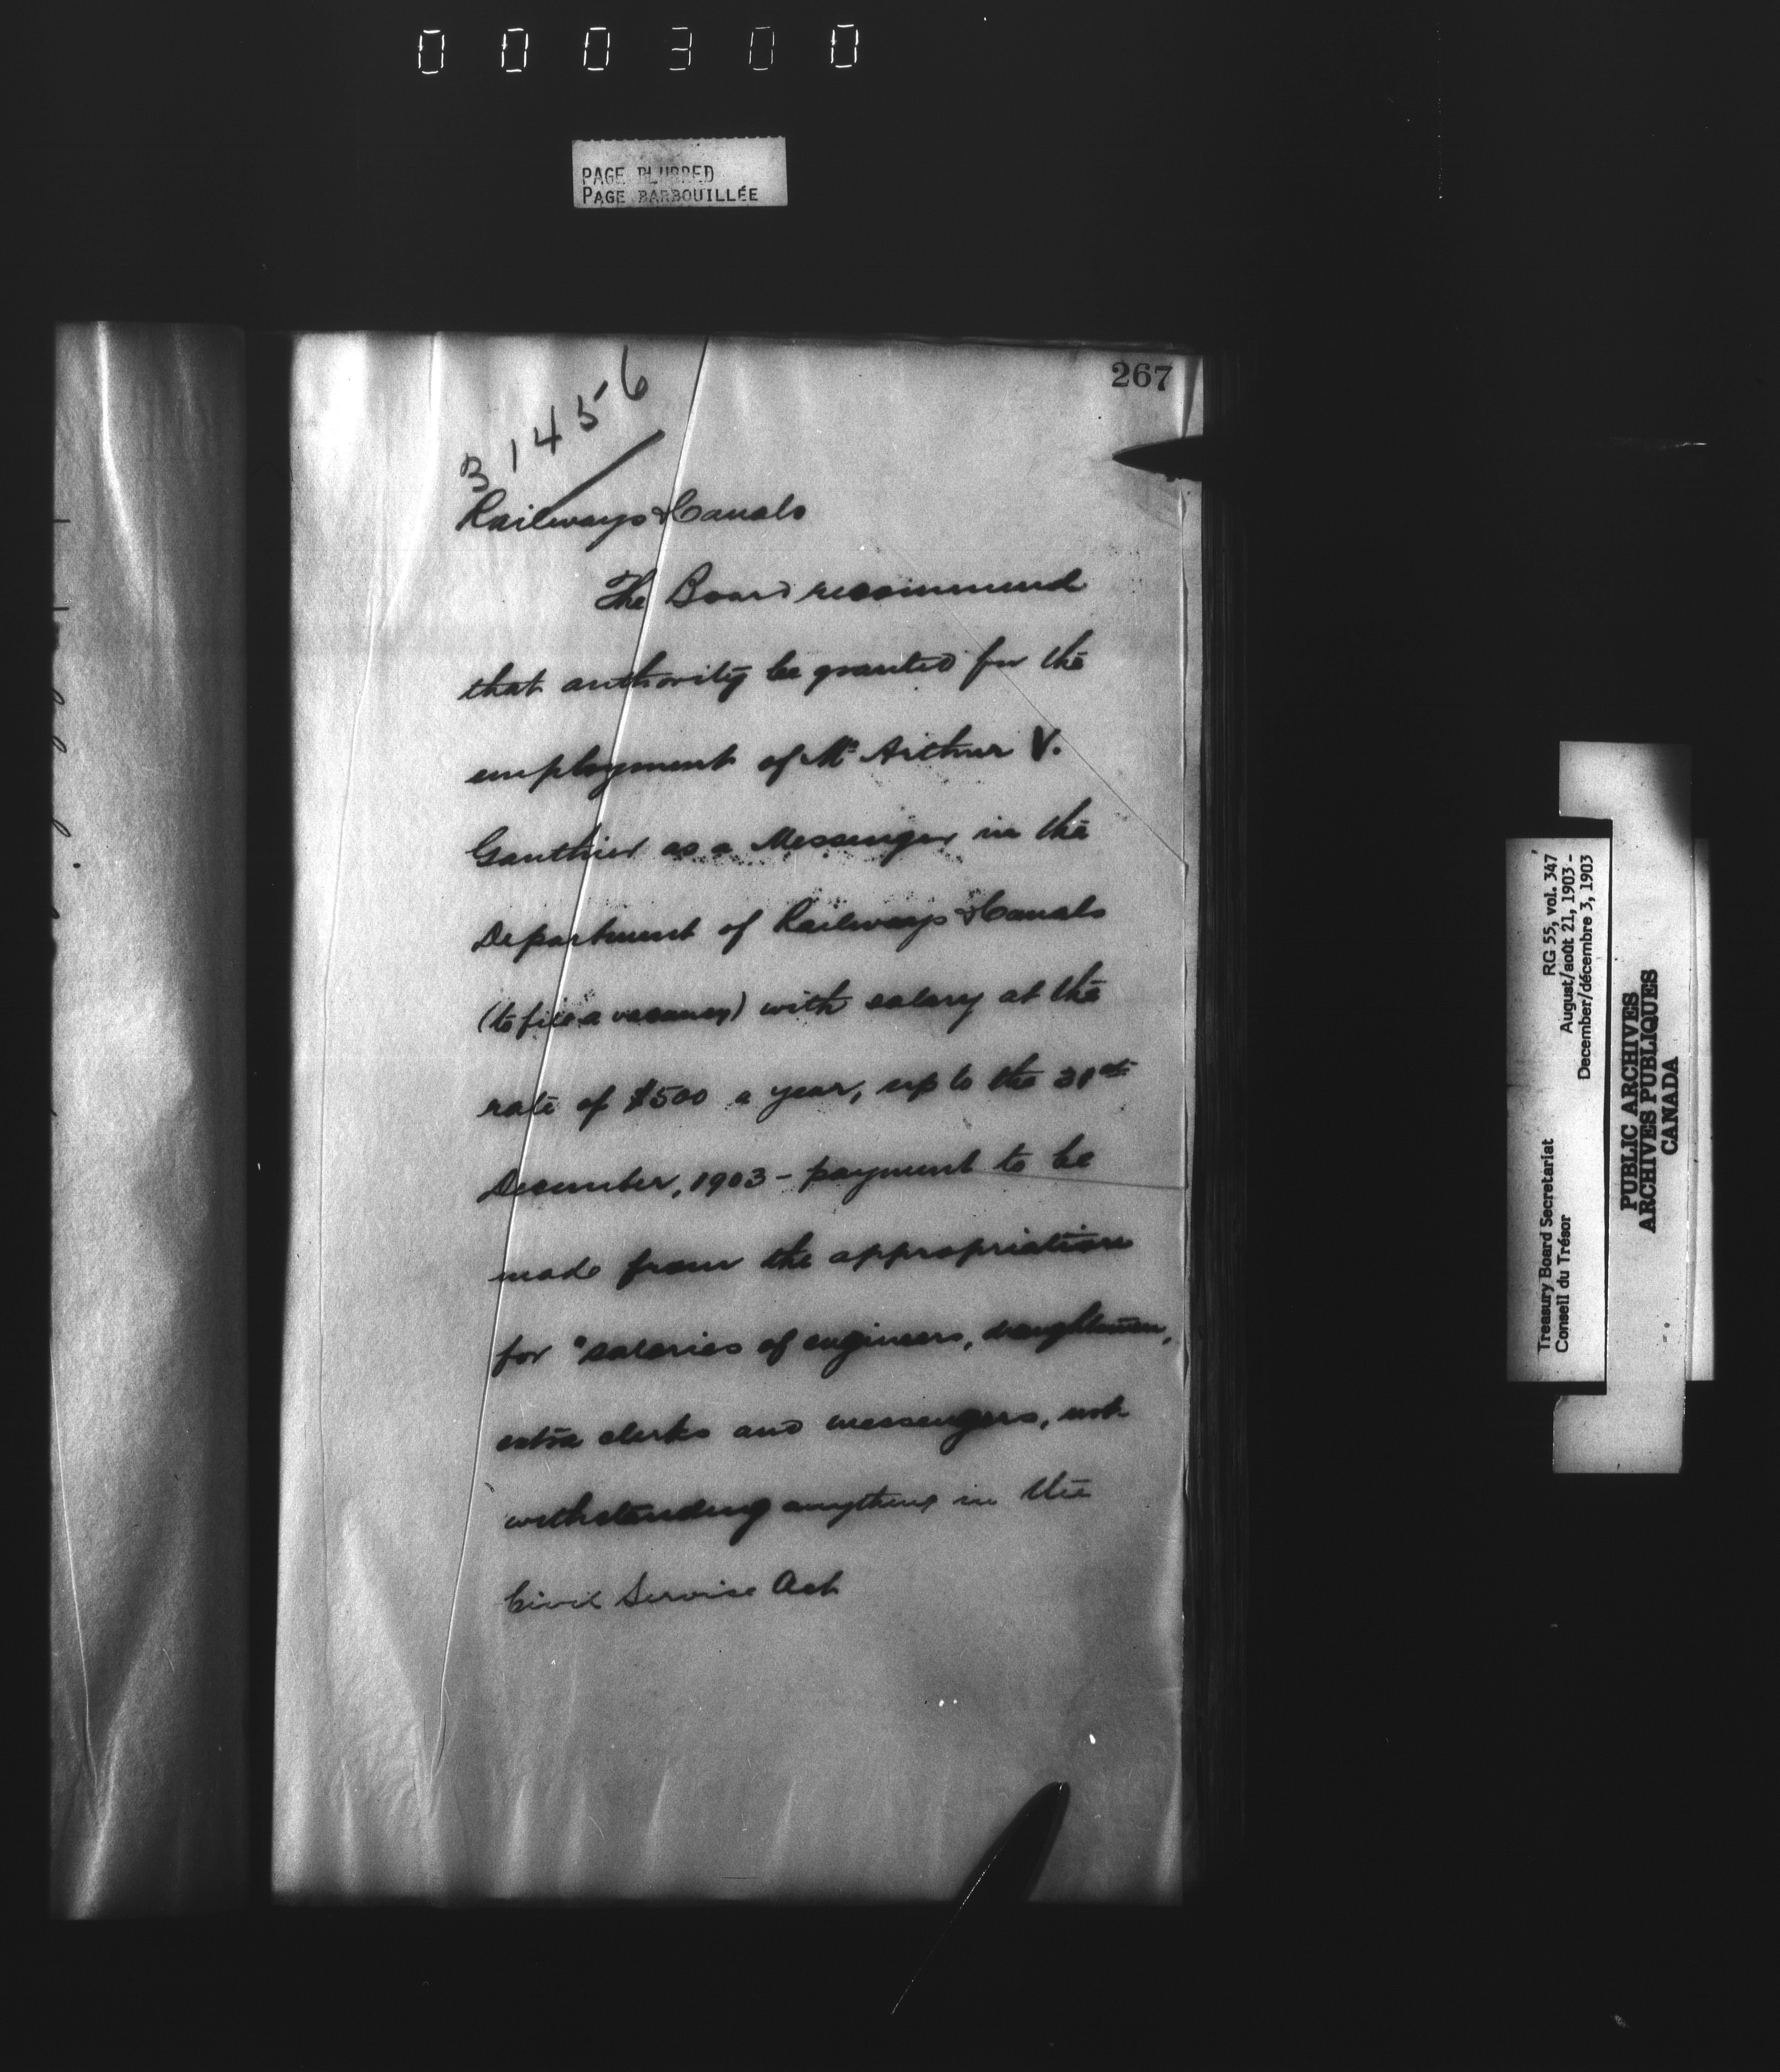 000300
PAGE BLURRED
PAGE BARBOUILLÉE
267
31456
Railways & Canals
The Board recommend
that authority be granted for the
employment of Mr Arthur V.
Gauthier as a Messenger in the
Department of Railways & Canals
(to fill a vacancy) with salary at the
rate of $500 a year, up to the 31st
December, 1903 - payment to be
made from the appropriation
for "salaries of engineers, draughtsmen,
extra clerks and messengers, not-
withstanding anything in the
Civil Service Act
Treasury Board Secretariat RG 55, vol. 347
Conseil du Trésor August/août 21, 1903 -
December/décembre 3, 1903
PUBLIC ARCHIVES
ARCHIVES PUBLIQUES
CANADA